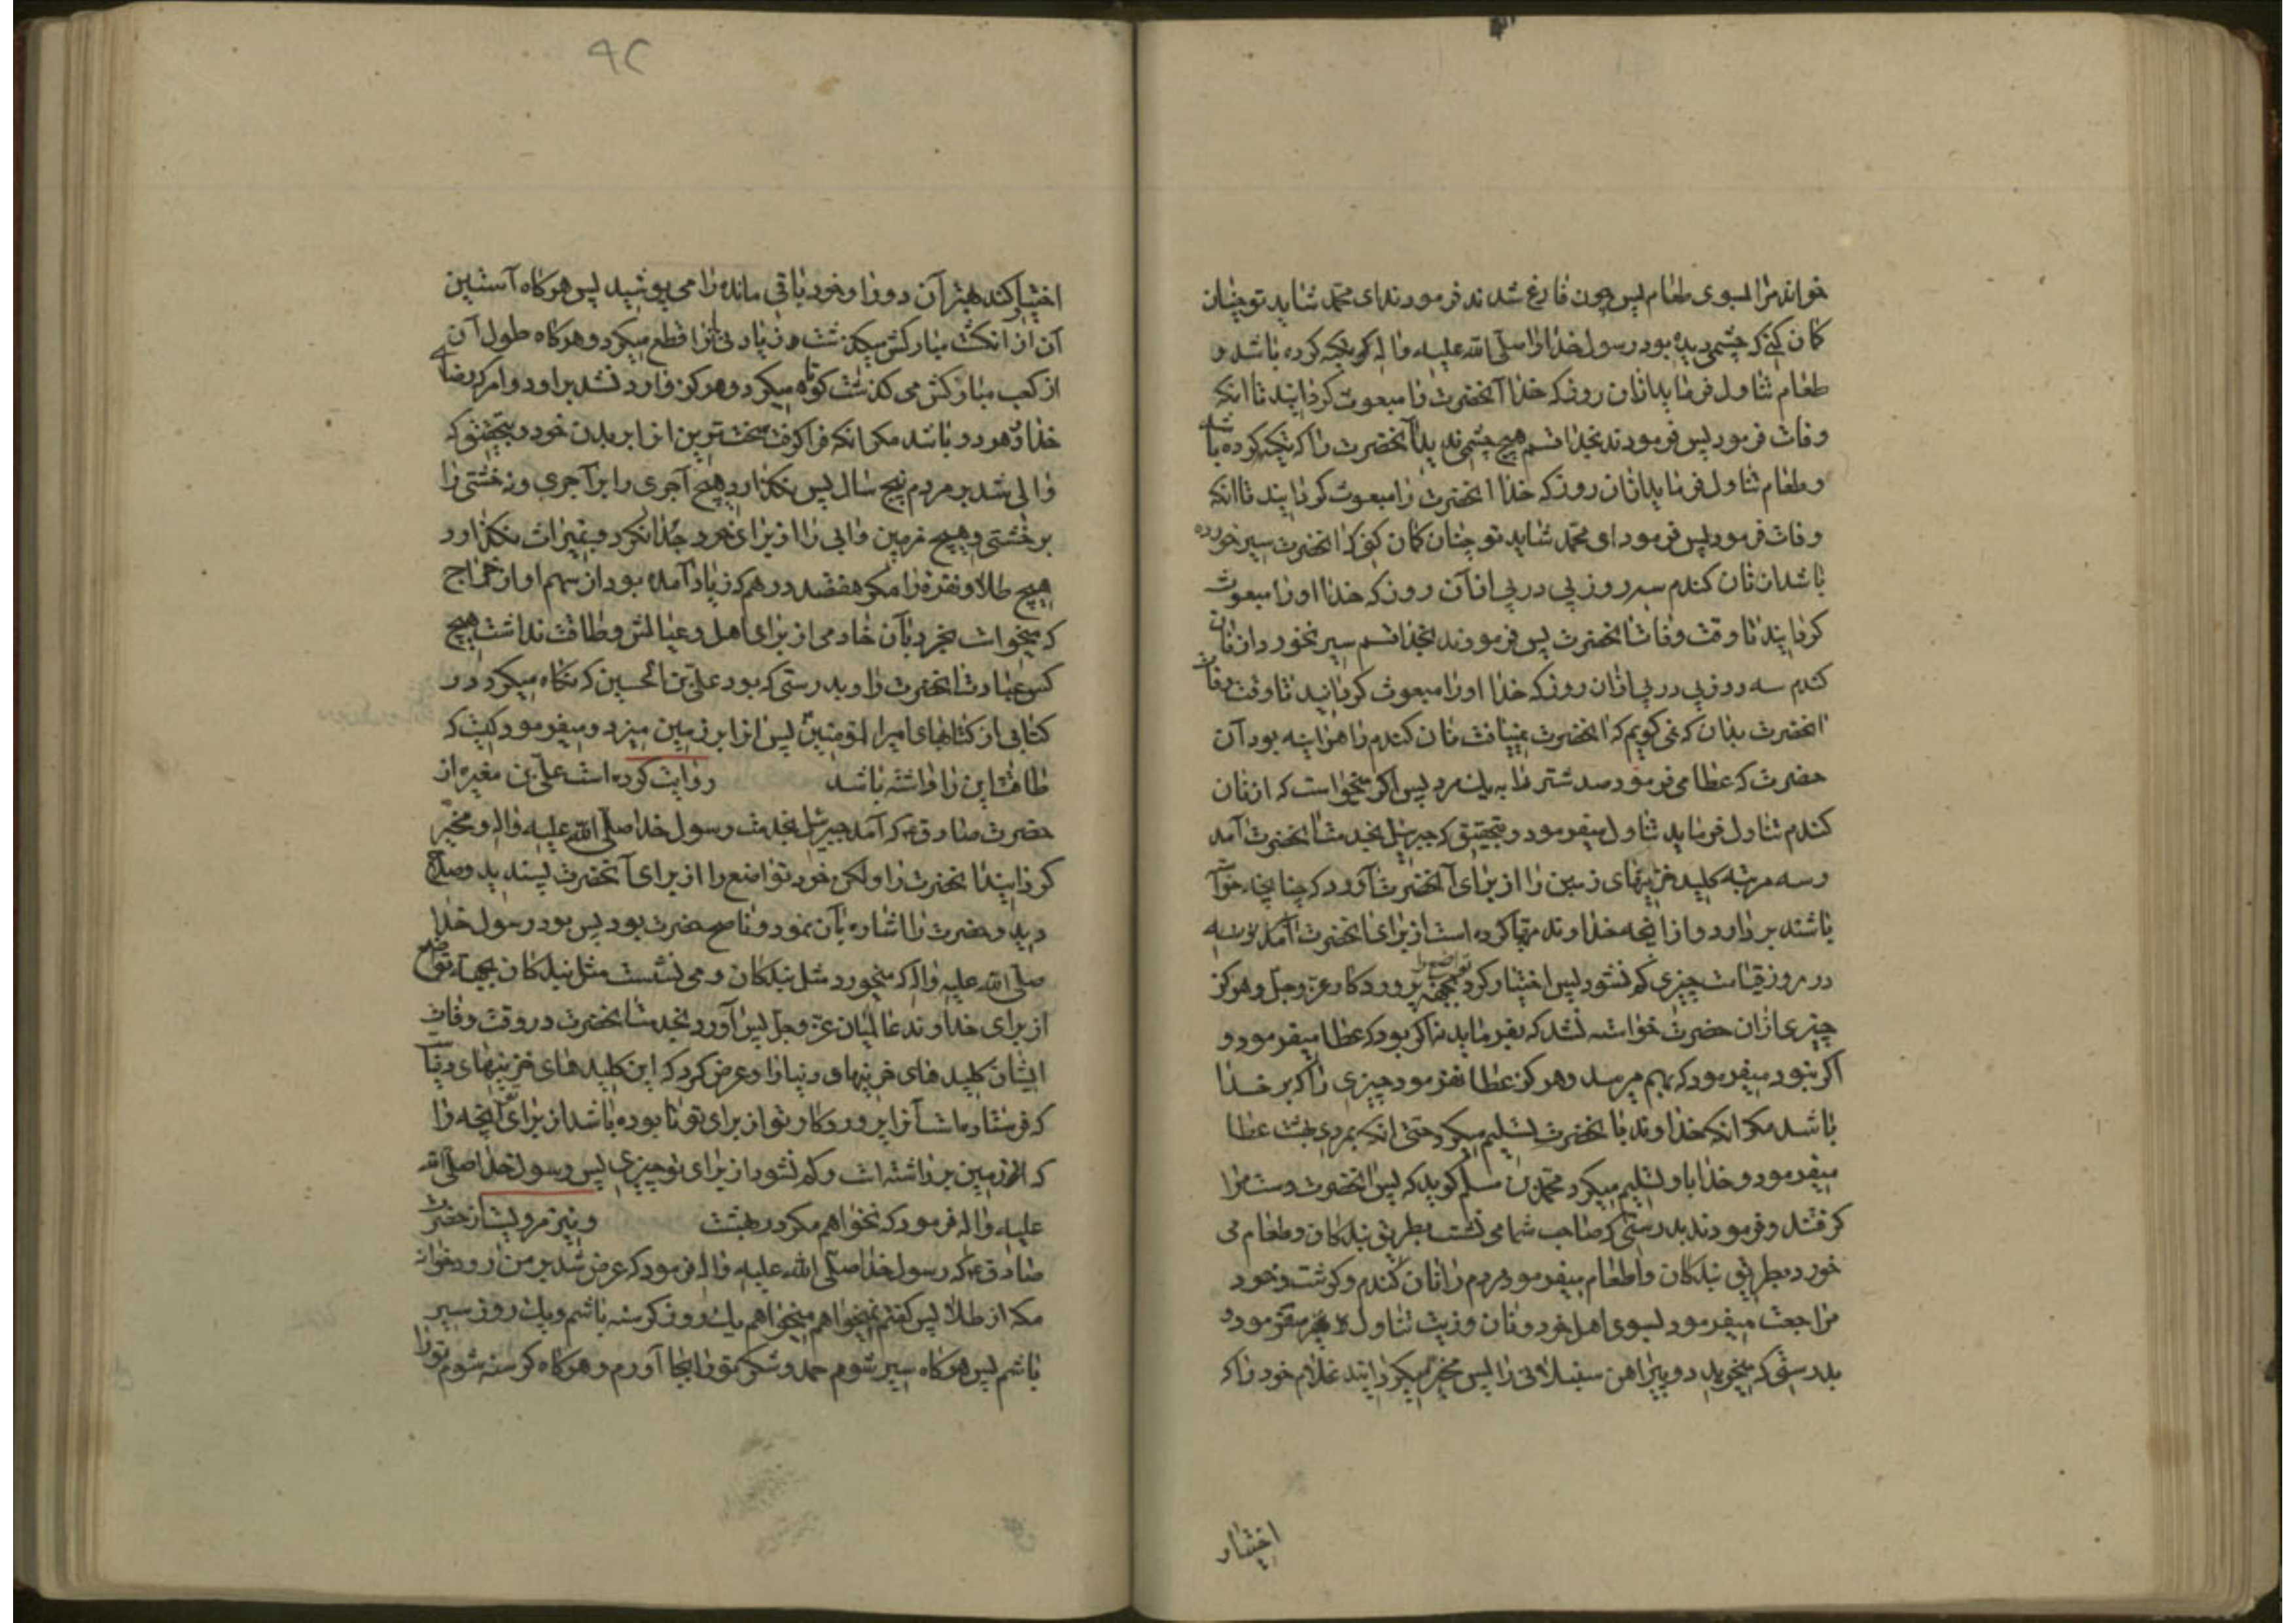 خواند مرا بسوی طعام پس چون فارغ شدند فرمودند ای محمد شاید تو چنان
کمان کنی که چشمی دیده بود رسول خدا را صلی الله علیه واله که تکیه کرده باشد و
طعام تناول فرماید ازان روزکه خدا آنحضرت را مبعوث کردانید تا انکه
وفات فرمود پس فرمودند بخدا قسم هیچ چشمی ندید آنحضرت را که تکیه کرده باشد
و طعام تناول فرماید ازان روزکه خدا آنحضرت را مبعوث کردانید تا انکه
وفات فرمود پس فرمود ای محمد شاید تو چنان کمان کنی که آنحضرت سیر خورده
باشد از نان کندم سه روز پی در پی از آن روزکه خدا او را مبعوث
کردانید تا وقت وفات آنحضرت پس فرمودند بخدا قسم سیر نخورد از نان
کندم سه روز پی در پی ازان روزکه خدا او را مبعوث کردانید تا وقت وفات
آنحضرت بدان که نمی کویم که آنحضرت نمییافت نان کندم را هراینه بود آن
حضرت که عطا می فرمود صد شتر را به یك مرد پس اکر میخواست که از نان
کندم تناول فرماید تناول میفرمود و بتحقیق که جبرئیل بخدمت آنحضرت آمد
و سه مرتبه کلید خزینهای زمین را از برای آنحضرت آورد که چنانچه خواسته
باشند بردارد و از انچه خداوند مهیا کرده است از برای آنحضرت
در روز قیامت چیزی کم نشود پس اختیار کرد تواضع را بجهة پروردکار عز وجل و هرکز
چیزی ازان حضرت خواسته نشد که بفرماید نه اکر بود که عطا میفرمود و
اکر نبود میفرمود که بهم میرسد و هرکز عطا نفرمود چیزی را که بر خدا
باشد مکر انکه خداوند با آنحضرت تسلیم میکرد حتی انکه بمردی بهشت عطا
میفرمود و خدا باو تسلیم میکرد محمد بن مسلم کوید که پس آنحضرت دست مرا
کرفتند و فرمودند بدرستی که صاحب شما می نشست بطریق بندکان و طعام می
خورد بطریق بندکان و اطعام میفرمود مردم را نان کندم و کوشت و خود
مراجعت میفرمود بسوی اهل خود و نان و زیت تناول میفرمود و
بدرستی که میخرید دو پیراهن سنبلانی را پس مخیر میکردانید غلام خود را که
اختیار
۹۲
اختیار کند بهتر آن دو را و خود باقی مانده را می پوشید پس هرکاه آستین
آن از انکشت مبارکش میکذشت زیادتی انرا قطع میکرد و هرکاه طول آن
از کعب مبارکش می کذشت کوتاه میکرد و هرکز وارد نشد براو دو امر که رضای
خدا در هر دو باشد مکر انکه فرا کرفت سخت ترین انرا بر بدن خود و بتحقیق که
والی شد بر مردم پنج سال پس نکذارد هیچ آجری را بر آجری و نه خشتی را
بر خشتی و هیچ زمین وآبی را از برای خود جدا نکرد و بمیراث نکذارد
هیچ طلا و نقره را مکر هفتصد درهم که زیاد آمده بود از سهم او از خراج
که میخواست بخرد بآن خادمی از برای اهل و عیالش و طاقت نداشت هیچ
کس عبادت آنحضرت را و بدرستی که بود علی بن الحسین که نکاه میکرد در
کتابی از کتابهای امیرالمؤمنین پس انرا بر زمین میزد و میفرمود کیست که
طاقت این را داشته باشد روایت کرده است علی بن مغیره از
حضرت صادق ع که آمد جبرئیل بخدمت رسول خدا صلی الله علیه واله و مخیر
کردانید آنحضرت را ولکن خود تواضع را از برای آنحضرت پسندید وصلاح
دید و حضرت را اشاره بآن نمود و ناصح حضرت بود پس بود رسول خدا
صلی الله علیه واله که میخورد مثل بندکان و می نشست مثل بندکان بجهة تواضع
از برای خداوند عالمیان عز وجل پس آورد بخدمت آنحضرت در وقت وفات
ایشان کلیدهای خزینهای دنیا را و عرض کرد که این کلیدهای خزینهای دنیا
که فرستاده است آنرا پروردکار تو از برای تو تا بوده باشد از برای تو آنچه را
که زمین برداشته است و کم نشود از برای تو چیزی پس رسول خدا صلی الله
علیه واله فرمود که نخواهم مکر در بهشت و نیز مرویست از حضرت
صادق ع که رسول خدا صلی الله علیه واله فرمود که عرض شد بر من رودخانه
مکه از طلا پس کفتم نمیخواهم میخواهم یك روز کرسنه باشم و یك روز سیر
باشم پس هرکاه سیر شوم حمد و شکر تو را بجا آورم و هرکاه کرسنه شوم تو را